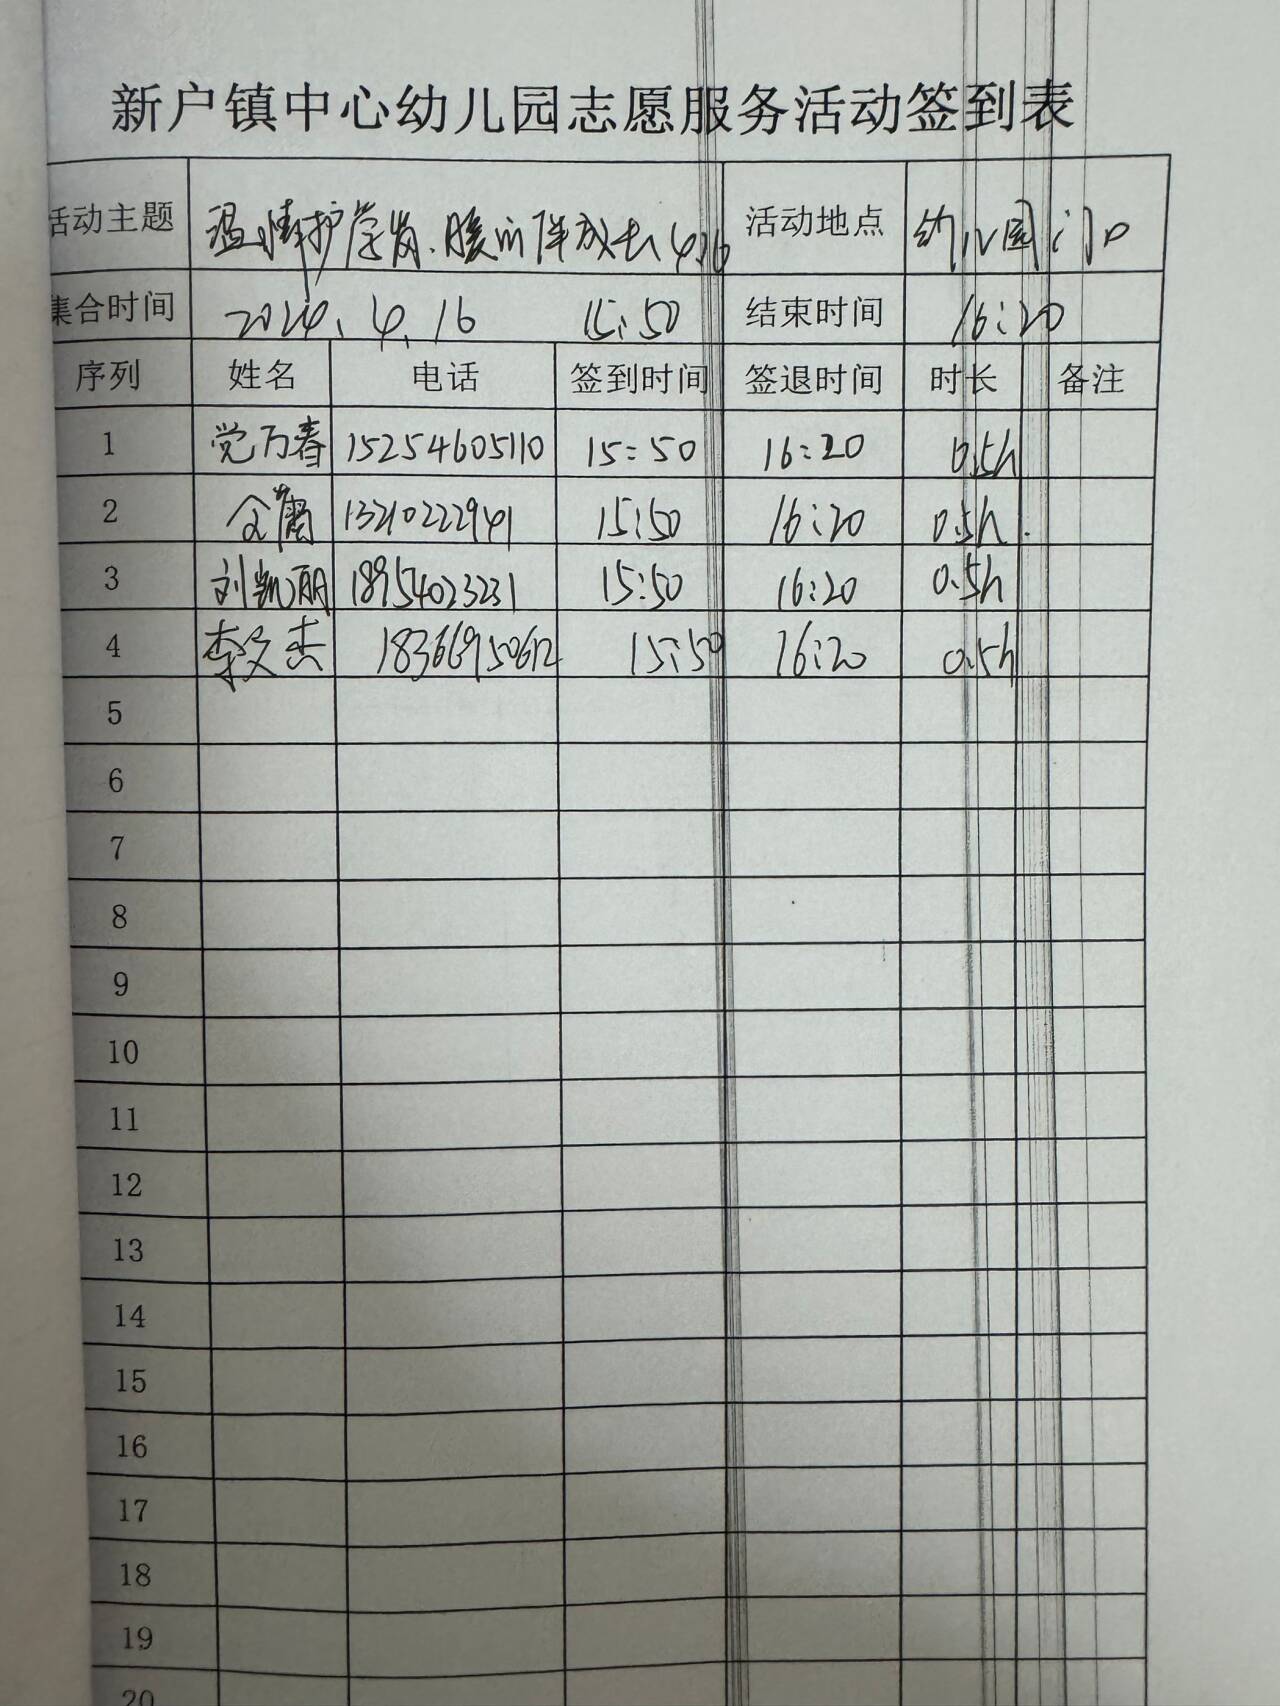 新户镇中心幼儿园志愿服务活动签到表
活动主题 温情护学岗、暖心伴成长 4.16 活动地点 幼儿园门口
集合时间 2024.4.16 15:50 结束时间 16:20
序列 姓名 电话 签到时间 签退时间 时长 备注
1 党万春 15254605110 15:50 16:20 0.5h
2 13210222941 15:50 16:20 0.5h
3 刘凯丽 18954023231 15:50 16:20 0.5h
4 李文杰 18366950612 15:50 16:20 0.5h
5
6
7
8
9
10
11
12
13
14
15
16
17
18
19
20